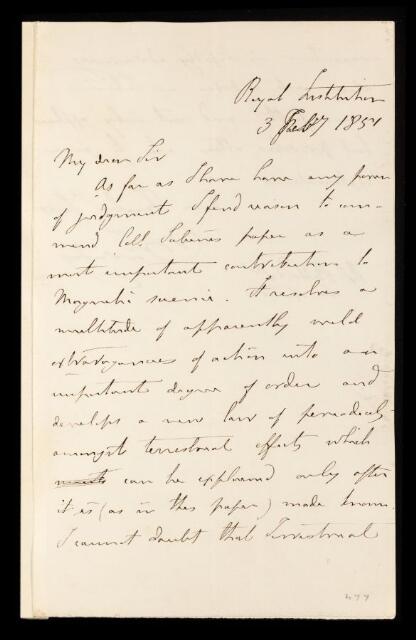 Royal Institution
3 Feby 1851
My dear Sir
As far as I have have any power
of judgment I find reason to com-
mend Coll. Sabine's paper as a
most important contribution to
Magnetic science. It resolves a
multitude of apparently wild
extravagancies of action into an
important degree of order and
develops a new law of periodicity
amongst terrestrial effects which
can be explained only after
it is (as in this paper) made known
I cannot doubt that Terrestrial
477